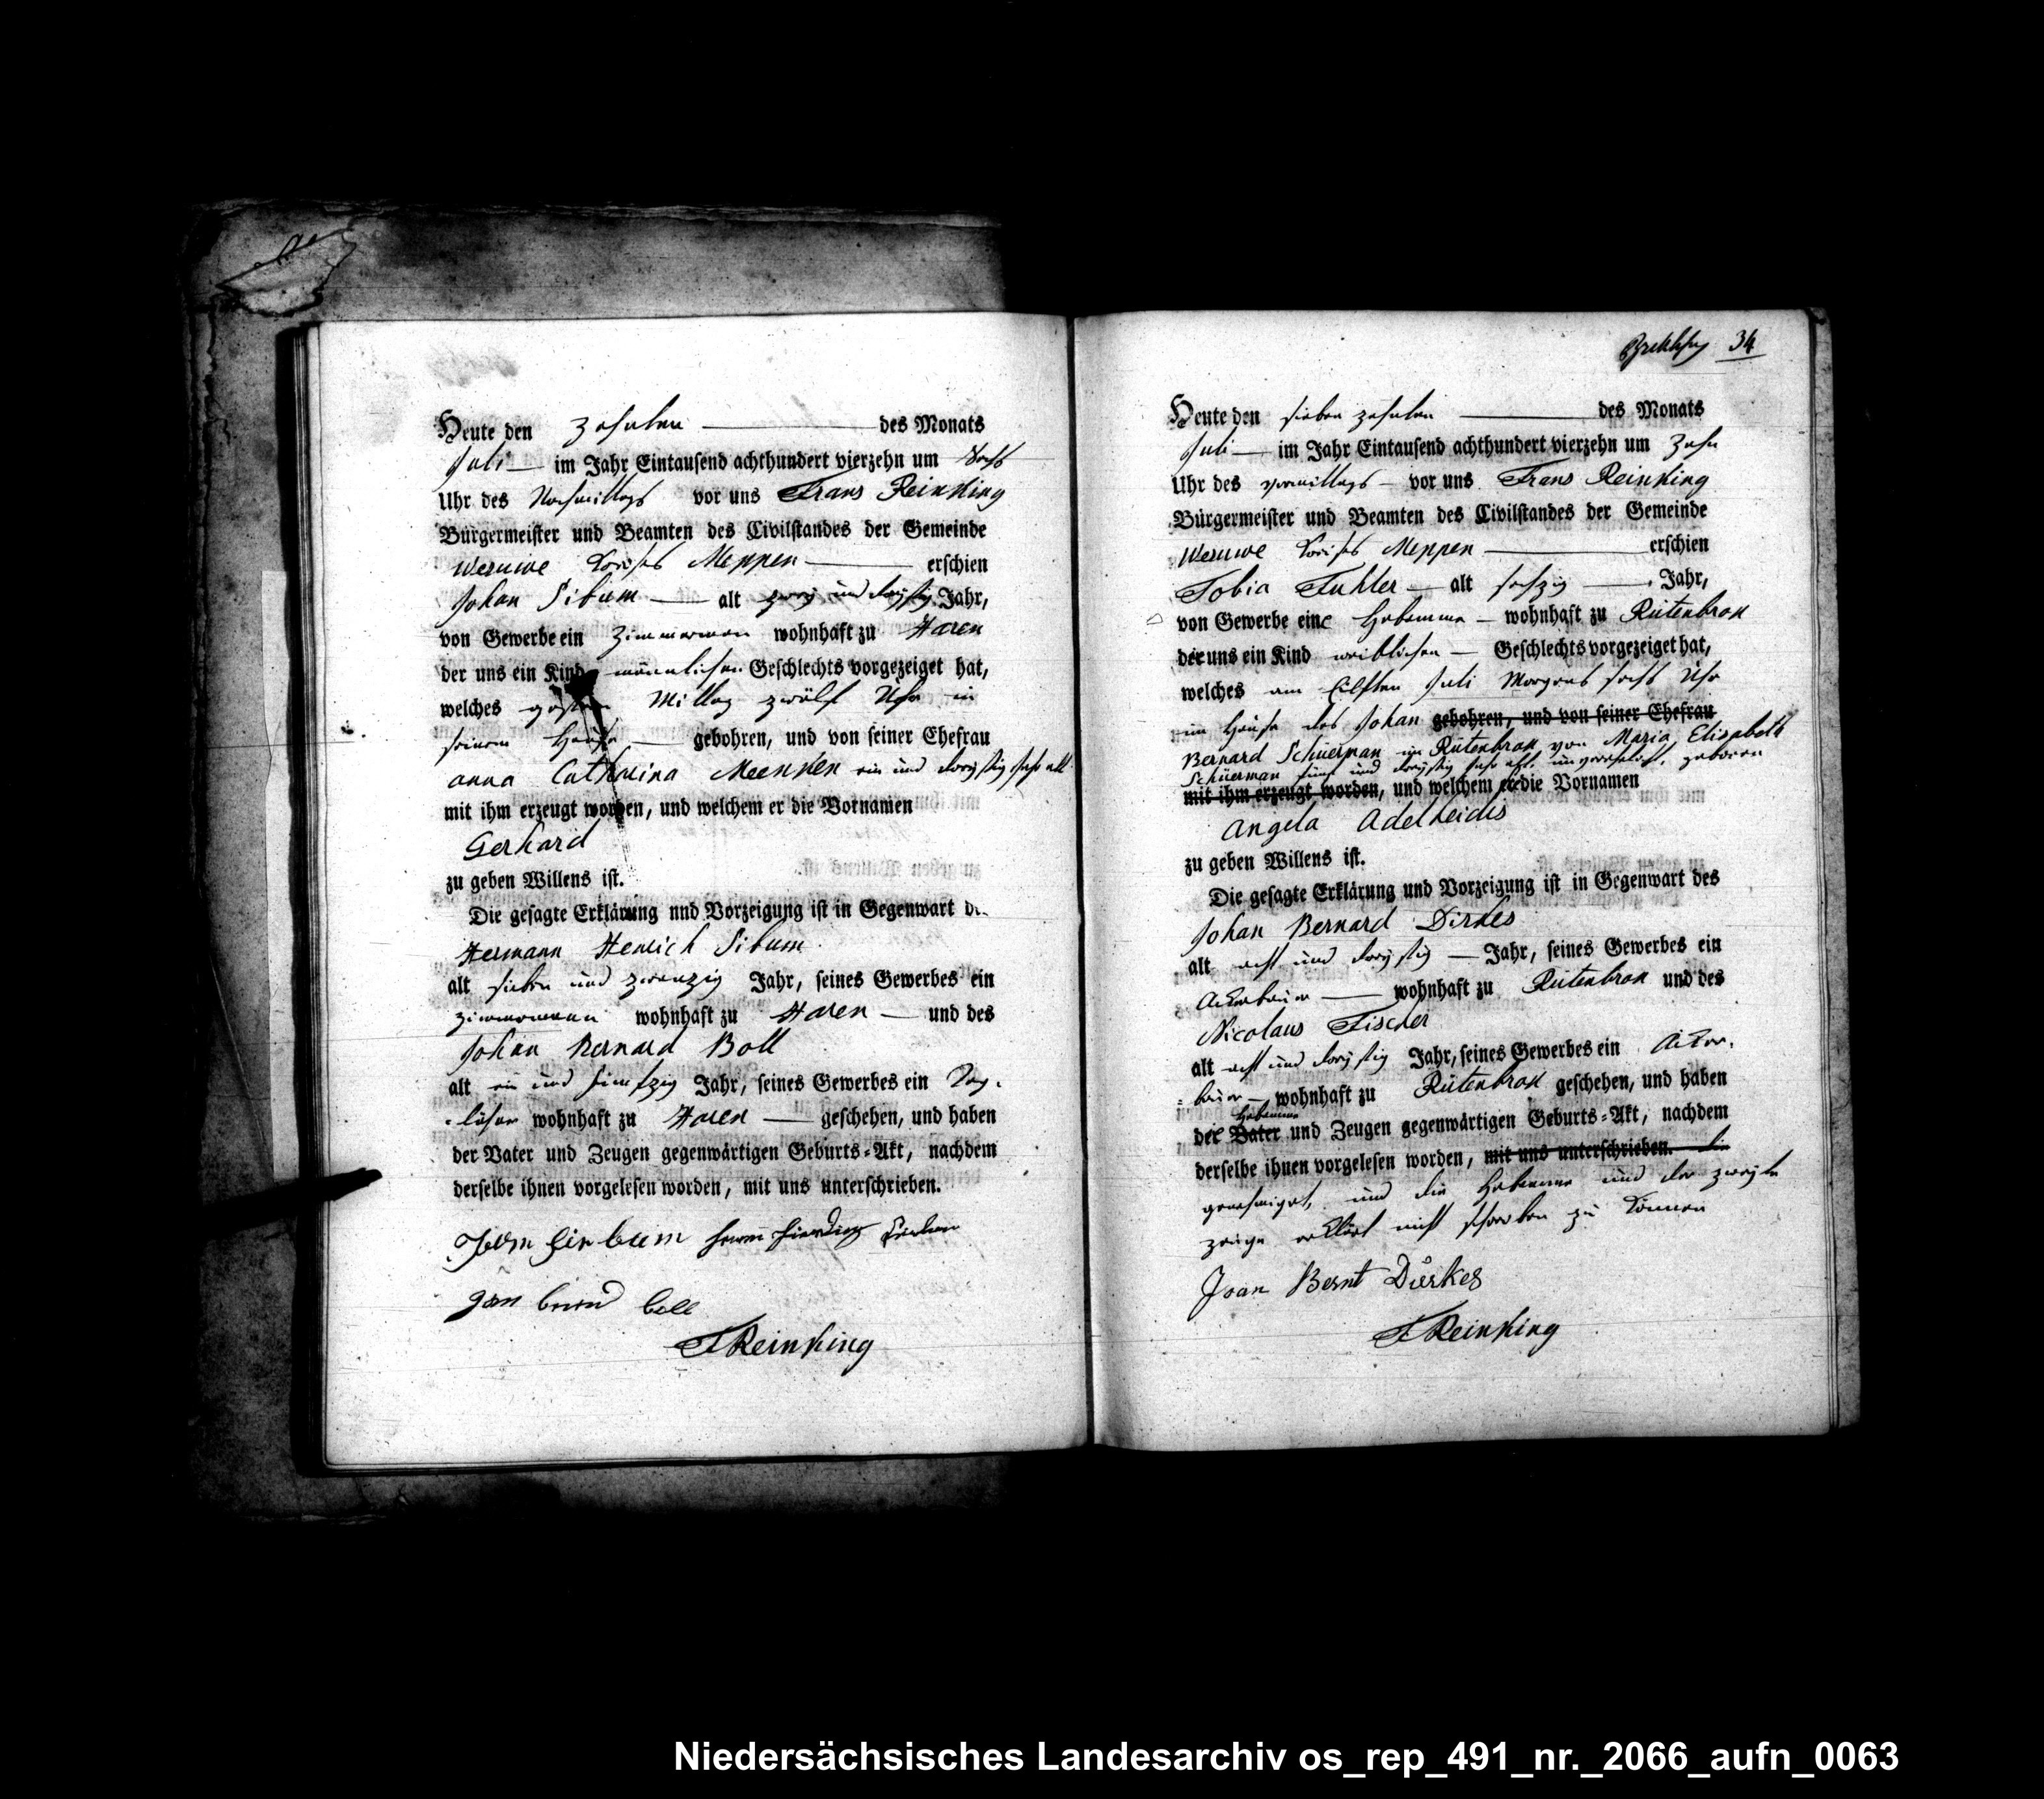 Heute den zehnten des Monats
Juli im Jahr Eintausend achthundert vierzehn um sechs
Uhr des Nachmittags vor uns Frans Reinking
Bürgermeister und Beamten des Civilstandes der Gemeinde
Wesuwe Kreises Meppen erschien
Johan Sibum alt zwey und dreyßig Jahr,
von Gewerbe ein Zimmerman wohnhaft zu Haren
der uns ein Kind männlichen Geschlechts vorgezeiget hat,
welches gestern Mittag zwölf Uhr in
seinem Hause gebohren, und von seiner Ehefrau
anna Catharina Meenken ein und dreyßig Jahr alt
mit ihm erzeugt worden, und welchem er die Vornamen
Gerhard
zu geben Willens ist.
Die gesagte Erklärung nnd Vorzeigung ist in Gegenwart
Hermann Henrich Sibum
alt sieben und zwanzig Jahr, seines Gewerbes ein
Zimmermann wohnhaft zu Haren und des
Johan Bernard Boll
alt ein und fünfzig Jahr, seines Gewerbes ein Tag-
löhner wohnhaft zu Haren geschehen, und haben
der Vater und Zeugen gegenwärtigen Geburts-Akt, nachdem
derselbe ihnen vorgelesen worden, mit uns unterschrieben.
FReinking
34
Heute den sieben zehnten des Monats
Juli im Jahr Eintausend achthundert vierzehn um zehn
Uhr des vormittags vor uns Frans Reinking
Bürgermeister und Beamten des Civilstandes der Gemeinde
Wesuwe Kreises Meppen erschien
Tobia Fuhler alt sechzig Jahr,
von Gewerbe eine Hebamme wohnhaft zu Rütenbrok
die uns ein Kind weiblichen Geschlechts vorgezeiget hat,
welches am Eilften Juli Morgens sechs Uhr
im Hause des Johan gebohren, und von seiner Ehefrau
Bernard Schüerman in Rütenbrok von Maria Elisabeth
Schüerman fünf und dreyßig Jahr alt, unverehelicht, geboren
mit ihm erzeugt worden, und welchem sie die Vornamen
Angela Adelheidis
zu geben Willens ist.
Die gesagte Erklärung und Vorzeigung ist in Gegenwart des
Johan Bernard Dirkes
alt acht und dreyßig Jahr, seines Gewerbes ein
Ackerbauer wohnhaft zu Rütenbrok und des
Nicolaus Fischer
alt acht und dreyßig Jahr, seines Gewerbes ein Acker-
bauer wohnhaft zu Rütenbrok geschehen, und haben
Hebamme
die Vater und Zeugen gegenwärtigen Geburts-Akt, nachdem
derselbe ihnen vorgelesen worden, mit uns unterschrieben.
genehmiget, und die Hebamme und der zweyte
zeuge erklärt nicht schreiben zu können
Joan Bernt Dierkes
FReinking
Niedersächsisches Landesarchiv os_rep_491_nr._2066_aufn_0063